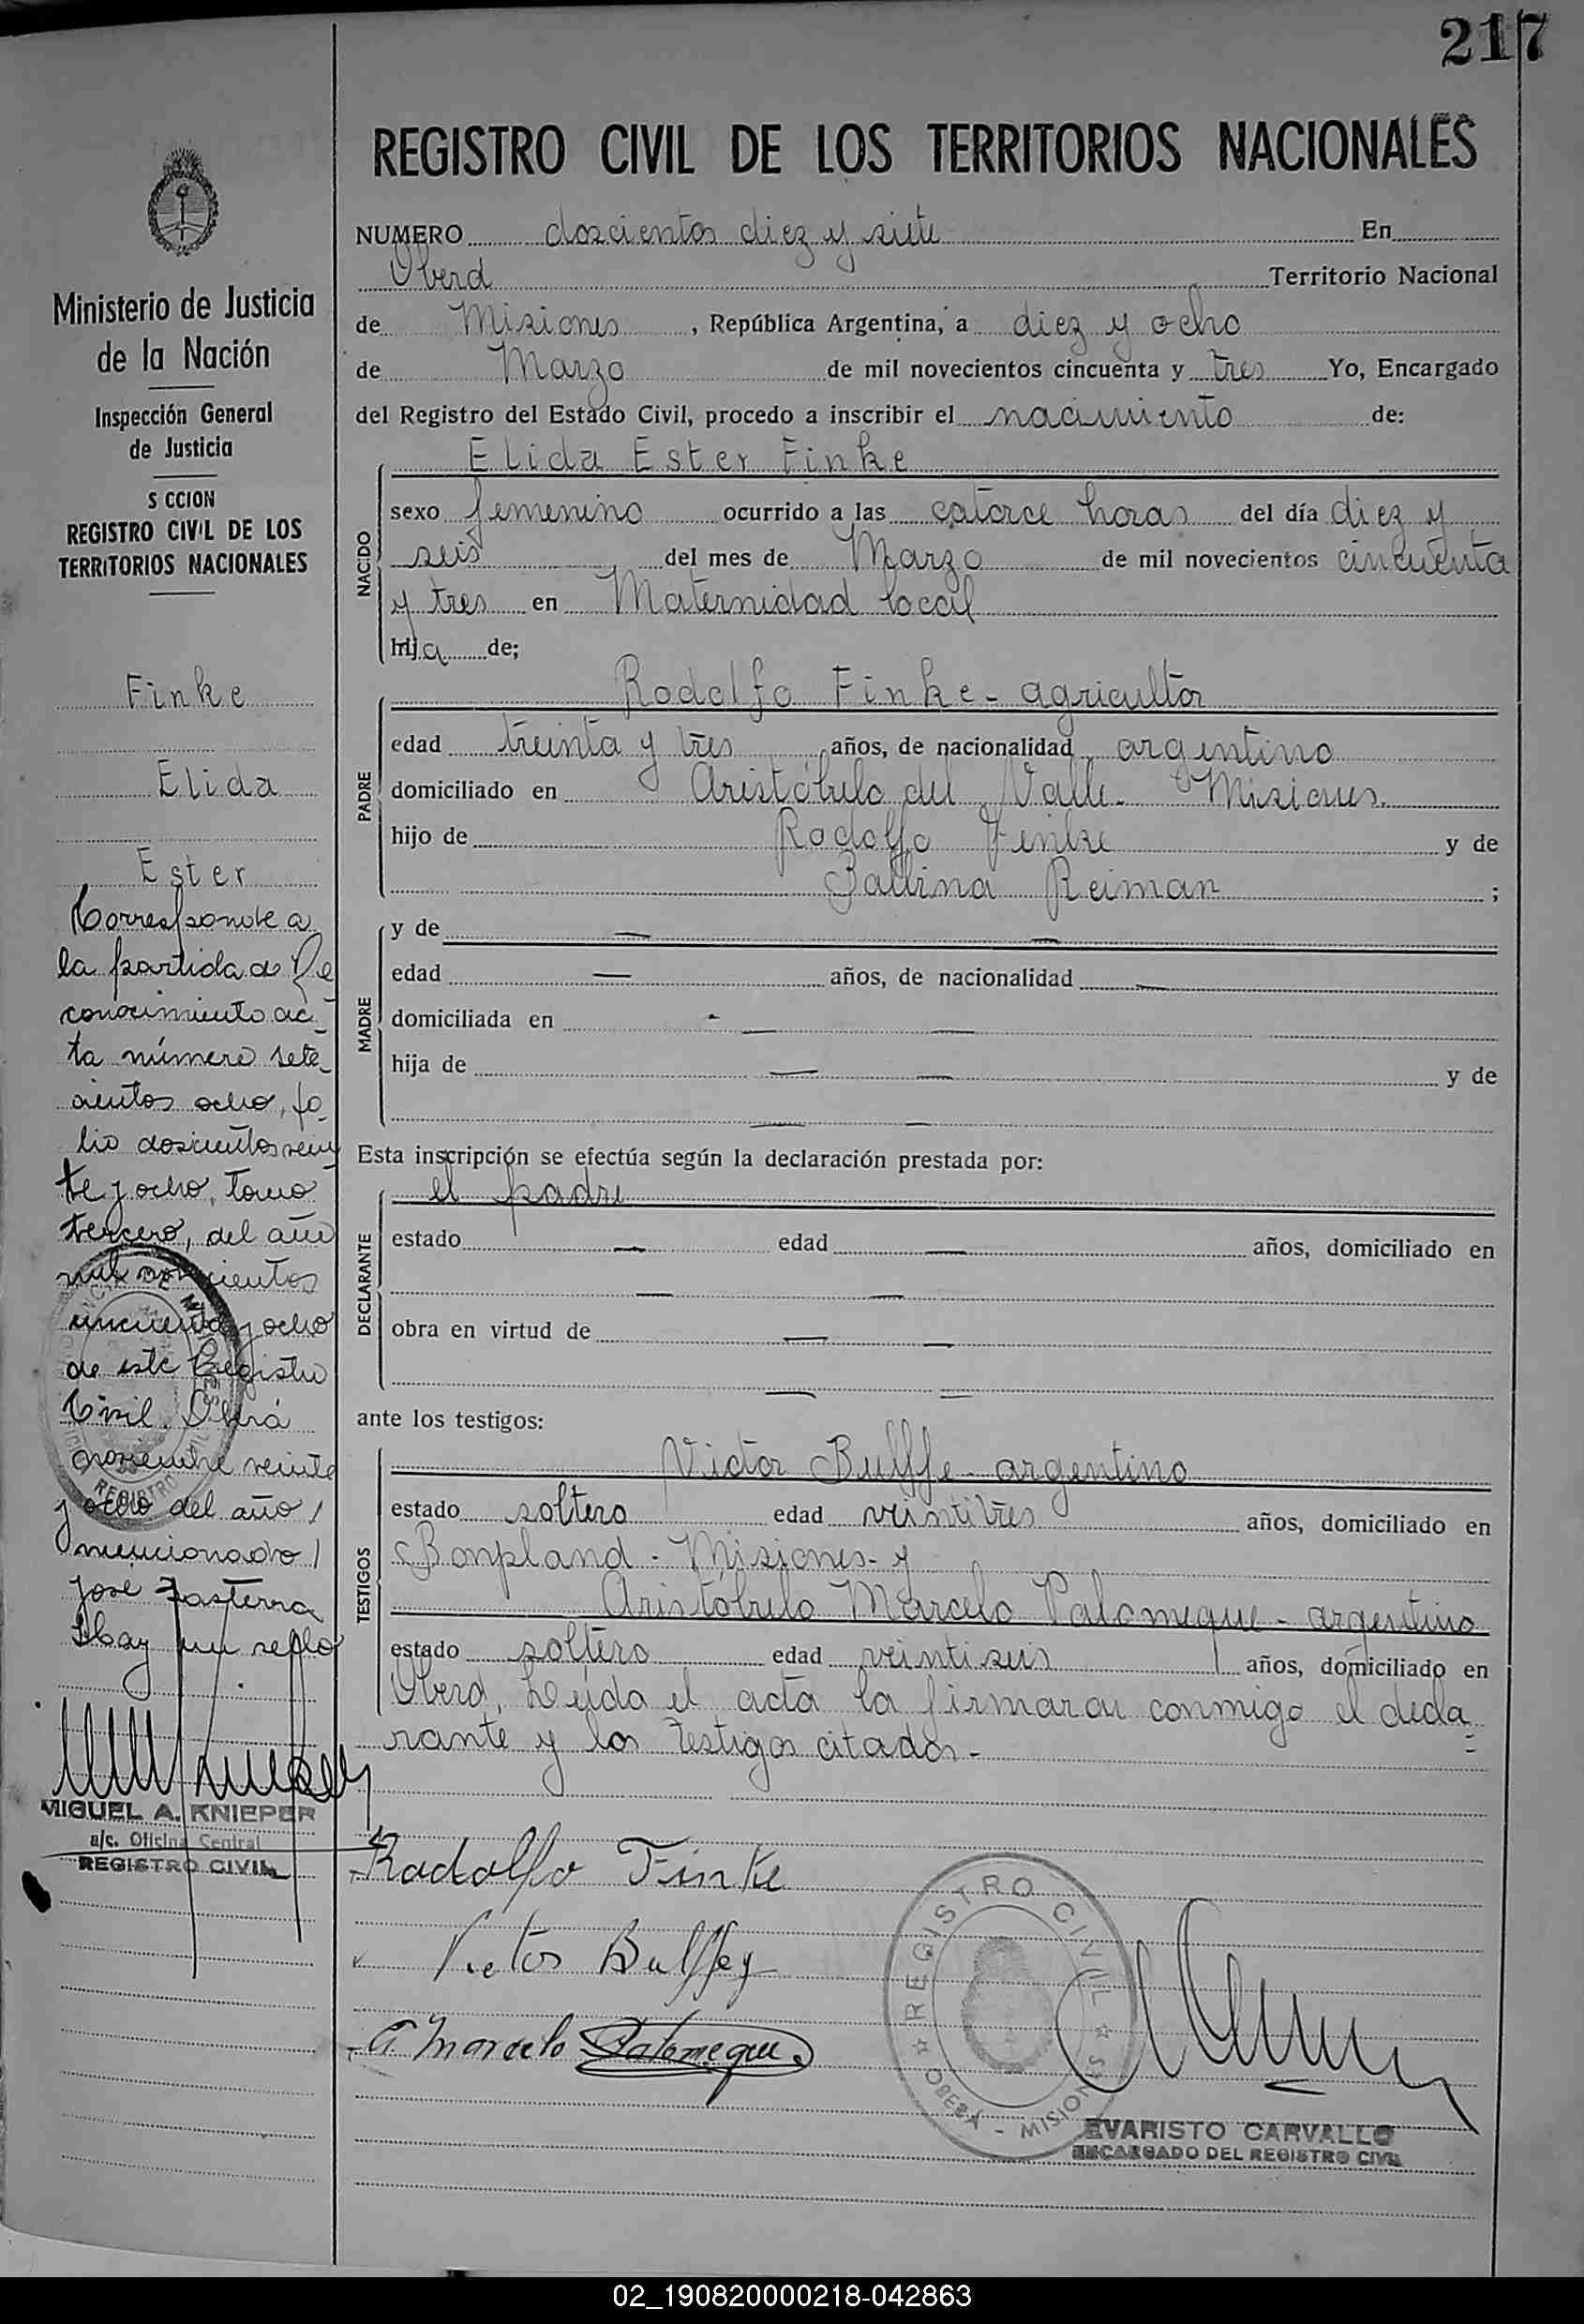 217
REGISTRO CIVIL DE LOS TERRITORIOS NACIONALES
Ministerio de Justicia
de la Nación
Inspección General
de Justicia
S CCION
REGISTRO CIVIL DE LOS
TERRITORIOS NACIONALES
Finke
Elida
Ester
Corresponde a
la partida de Re
conocimiento ac-
ta número sete-
cientos ocho, fo-
lio doscientos vein
te y ocho, tomo
tercero, del año
mil novecientos
cincuenta y ocho
de este Registro
Civil. Oberá
noviembre veinte
y ocho del año /
mencionado /
José Zasterra
Hay un sello
MIGUEL A. KNIEPER
a/c. Oficina Central
REGISTRO CIVIL
NUMERO doscientos diez y siete En
Oberá Territorio Nacional
de Misiones, República Argentina, a diez y ocho
de Marzo de mil novecientos cincuenta y tres Yo, Encargado
del Registro del Estado Civil, procedo a inscribir el nacimiento de:
NACIDO
Elida Ester Finke
sexo femenino ocurrido a las catorce horas del día diez y
seis del mes de Marzo de mil novecientos cincuenta
y tres en Maternidad local
hija de;
PADRE
Rodolfo Finke - agricultor
edad treinta y tres años, de nacionalidad argentino
domiciliado en Aristóbulo del Valle - Misiones.
hijo de Rodolfo Finke y de
Reiman ;
MADRE
y de — —
edad — años, de nacionalidad —
domiciliada en — —
hija de — — y de
— —
Esta inscripción se efectúa según la declaración prestada por:
DECLARANTE
el padre
estado — edad — años, domiciliado en
— —
obra en virtud de — —
— —
ante los testigos:
TESTIGOS
Victor Bulffe - argentino
estado soltero edad veintitres años, domiciliado en
Bonpland - Misiones - y
Aristóbulo Marcelo Palomeque - argentino
estado soltero edad veintiseis años, domiciliado en
Oberá, Leída el acta la firmaran conmigo el decla=
rante y los testigos citados -
Rodolfo Finke
Victor Bulffey
A. Marcelo Palomeque
REGISTRO CIVIL
OBERA - MISIONES
EVARISTO CARVALLO
ENCARGADO DEL REGISTRO CIVIL
02_190820000218-042863